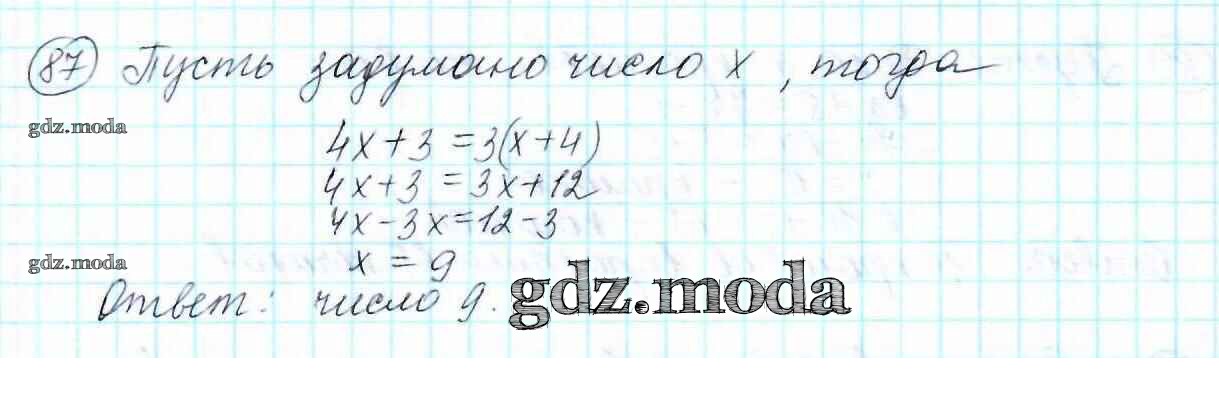 87 Пусть задумано число x, тогда
gdz.moda
4x+3=3(x+4)
4x+3=3x+12
4x-3x=12-3
gdz.moda
x=9
Ответ: число 9.
gdz.moda